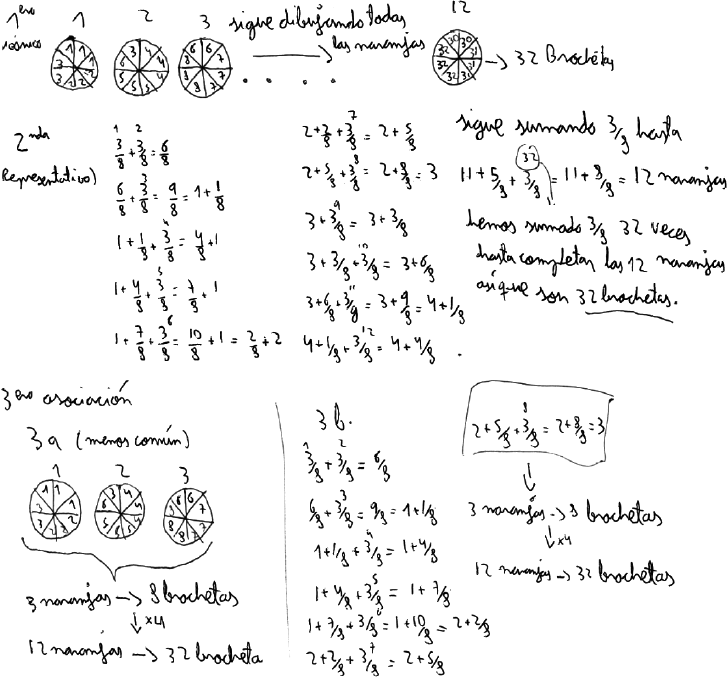 1ero icónico
1 2 3 sigue dibujando todas las naranjas 12
. . . . → 32 Brochetas
2nda Representativo)
1 2
3/8 + 3/8 = 6/8
6/8 + 3/8 (3) = 9/8 = 1 + 1/8
1 + 1/8 + 3/8 (4) = 4/8 + 1
1 + 4/8 + 3/8 (5) = 7/8 + 1
1 + 7/8 + 3/8 (6) = 10/8 + 1 = 2/8 + 2
2 + 2/8 + 3/8 (7) = 2 + 5/8
2 + 5/8 + 3/8 (8) = 2 + 8/8 = 3
3 + 3/8 (9) = 3 + 3/8
3 + 3/8 + 3/8 (10) = 3 + 6/8
3 + 6/8 + 3/8 (11) = 3 + 9/8 = 4 + 1/8
4 + 1/8 + 3/8 (12) = 4 + 4/8
.
sigue sumando 3/8 hasta
32
11 + 5/8 + 3/8 = 11 + 8/8 = 12 naranjas
hemos sumado 3/8 32 veces
hasta completar las 12 naranjas
así que son 32 brochetas.
3ero asociación
3a (menos común)
1 2 3
3 naranjas → 8 brochetas
↓ x4
12 naranjas → 32 brocheta
3b.
1 2
3/8 + 3/8 = 6/8
6/8 + 3/8 (3) = 9/8 = 1 + 1/8
1 + 1/8 + 3/8 (4) = 1 + 4/8
1 + 4/8 + 3/8 (5) = 1 + 7/8
1 + 7/8 + 3/8 (6) = 1 + 10/8 = 2 + 2/8
2 + 2/8 + 3/8 (7) = 2 + 5/8
2 + 5/8 + 3/8 (8) = 2 + 8/8 = 3
↓
3 naranjas → 8 brochetas
↓ x4
12 naranjas → 32 brochetas